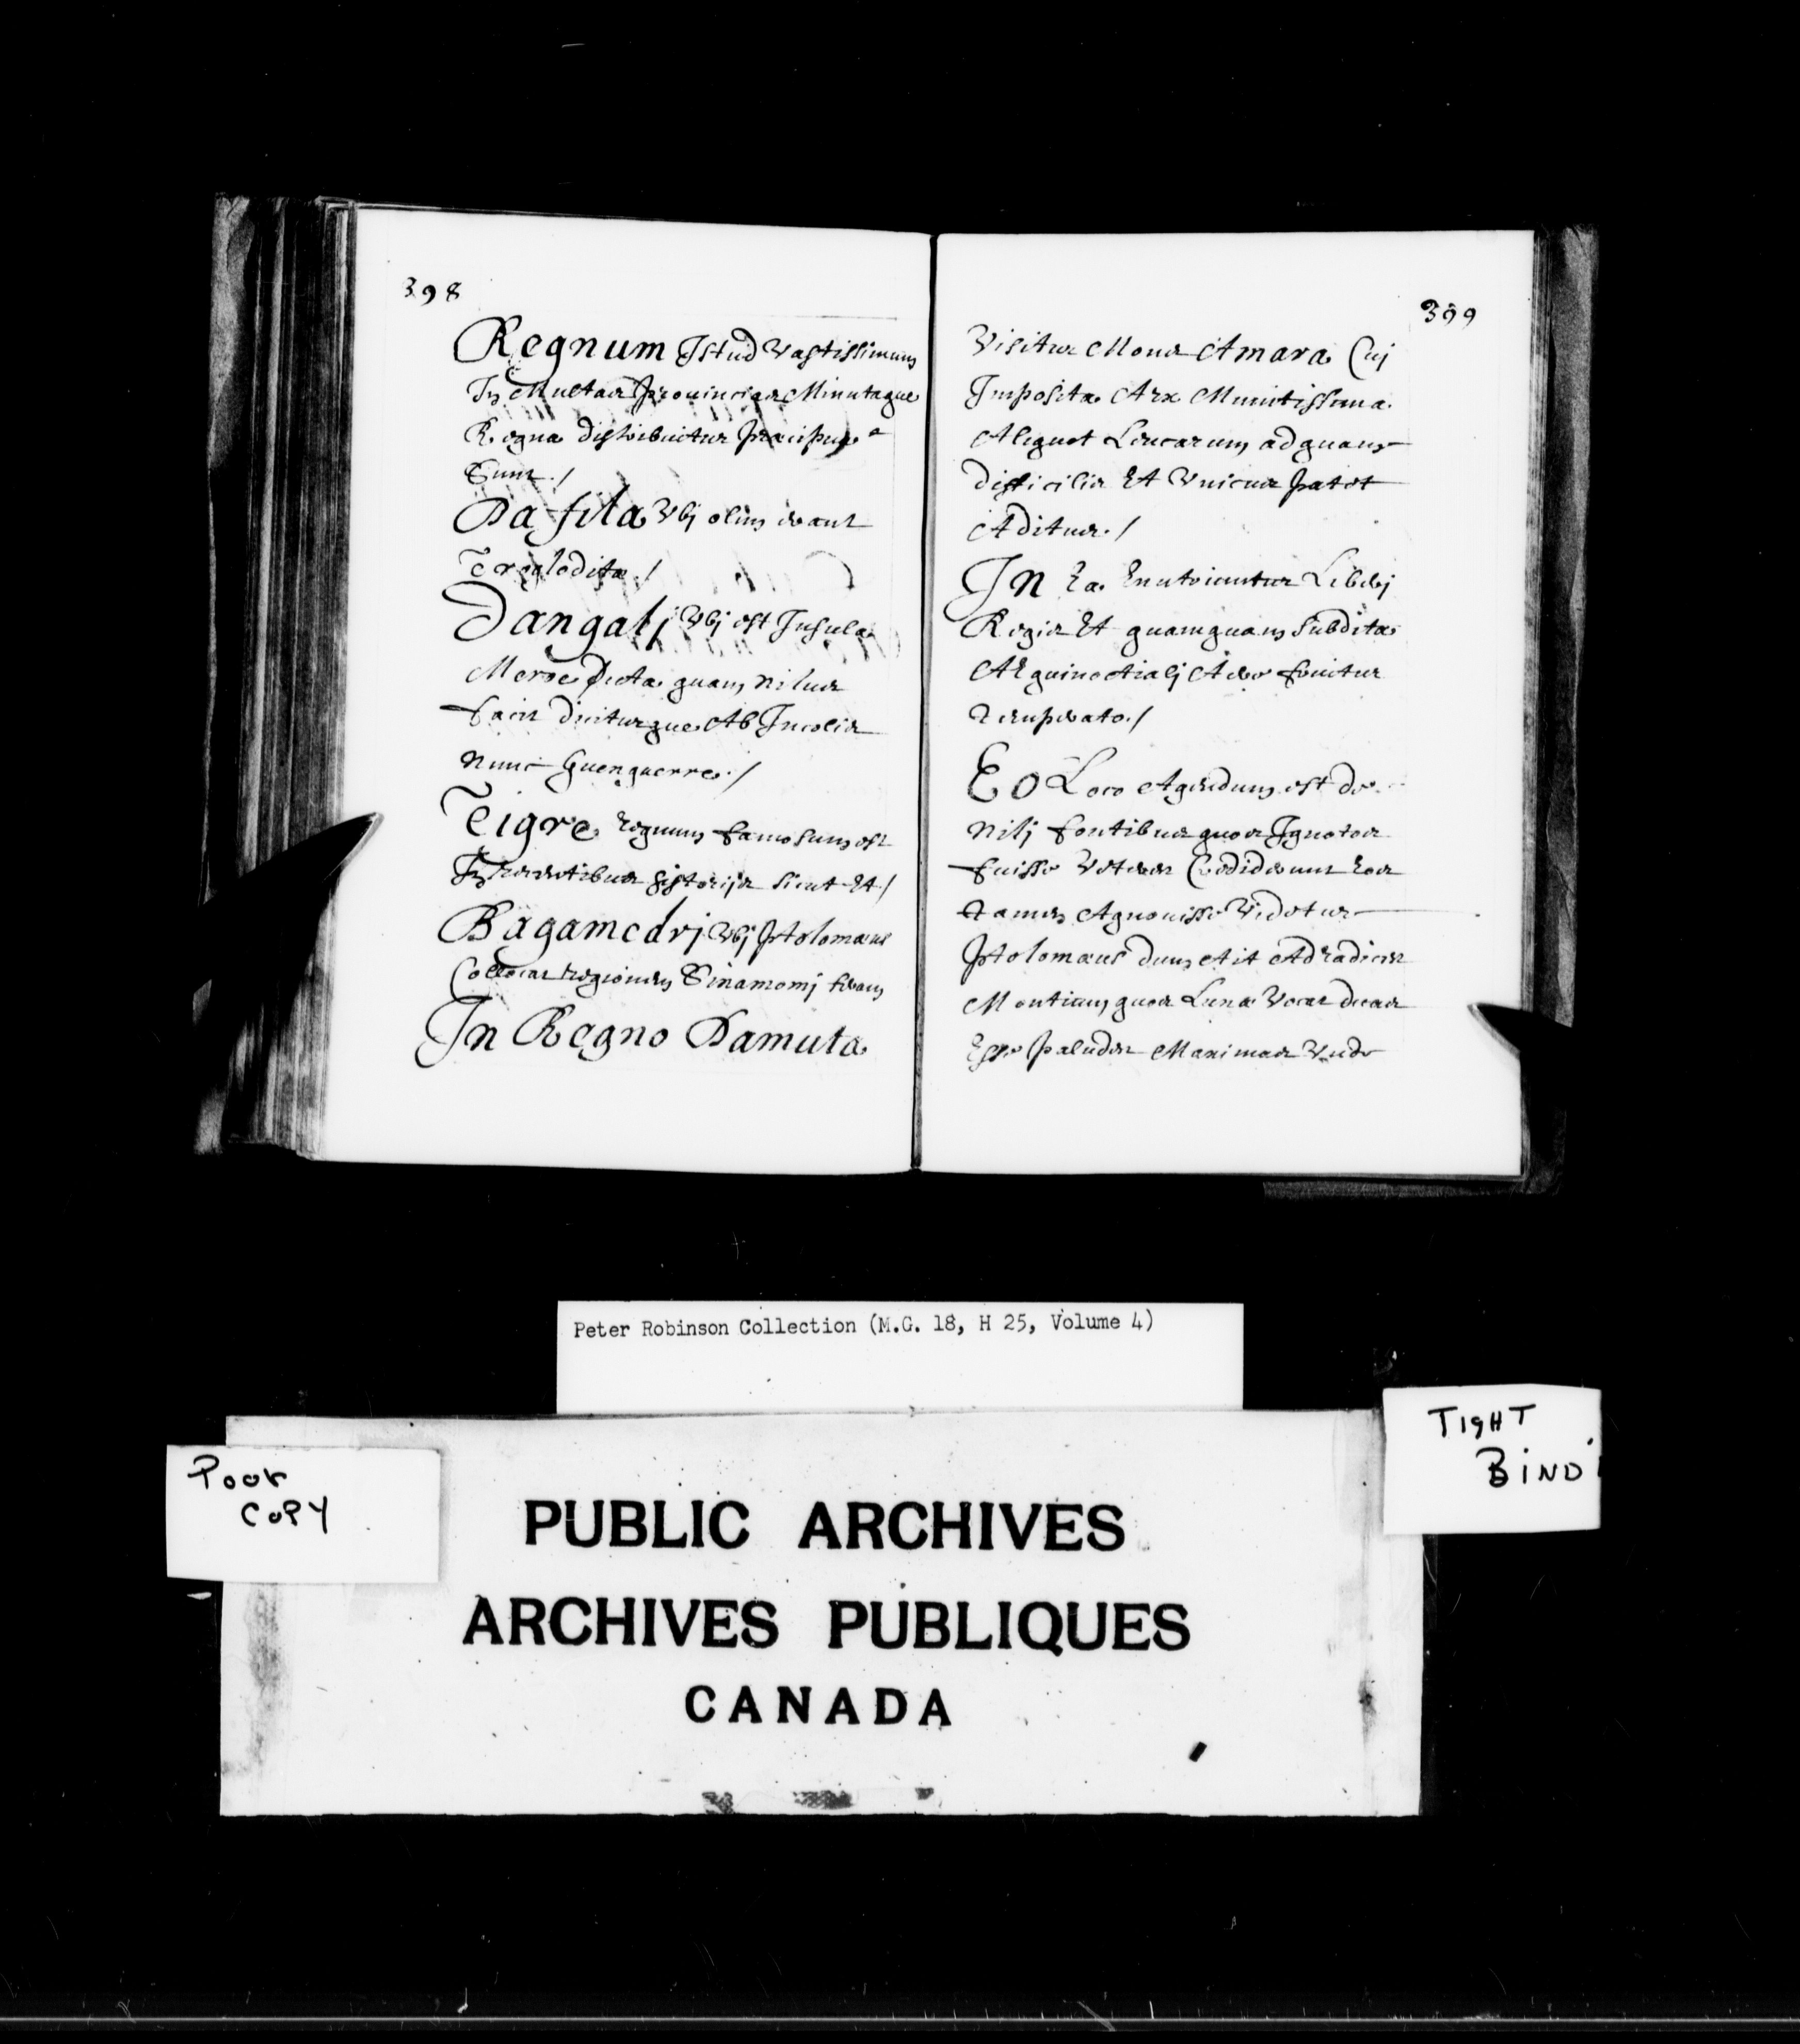 398
Regnum Istud Vastissimum
In Multas Prouincias Minutaque
Regna distribuitur præcipua
Sunt ./
Dafila Vbj olim erant
Trogloditæ ./
Dangalj Vbj est Insula
Meroe dicta quam Nilus
facit diciturque Ab Incolis
Nunc Guenguerre ./
Teigre regnum famosum est
In recentibus historijs sicut Et /
Bagamedrj Vbj Ptolomæus
Collocat regionem Sinamomj feram
In Regno Damuta
399
Visitur Mons Amara Cuj
Imposita Arx Munitissima
Aliquot Leucarum ad quam
difficilis Et Vnicus patet
Aditus ./
In Ea Enutriuntur Liberj
Regis Et quamquam Subdita
Æquinoctialj Aere fruitur
Temperato ./
Eo Loco Agendum est de
Nilj fontibus quos Ignotos
fuisse Veteres Crediderunt Eos
tamen Agnouisse Videtur
Ptolomæus dum Ait Ad radices
Montium quos Lunæ Vocat duas
Esse paludes Maximas Vnde
Peter Robinson Collection (M.G. 18, H 25, Volume 4)
Poor
Copy
TIGHT
BIND
PUBLIC ARCHIVES
ARCHIVES PUBLIQUES
CANADA